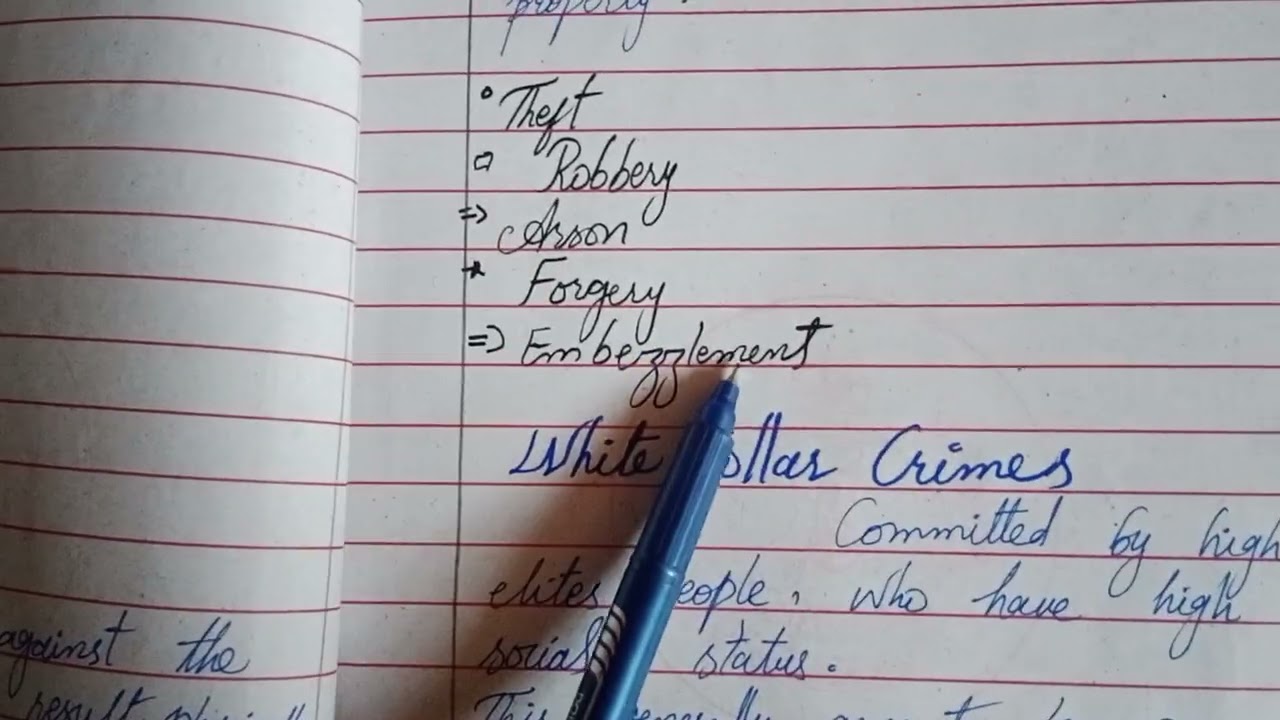 property.
• Theft
▫ Robbery
=> Arson
* Forgery
=> Embezzlement
White ollar Crimes
Committed by high
elites eople, who have high
social status.
This
against the
result